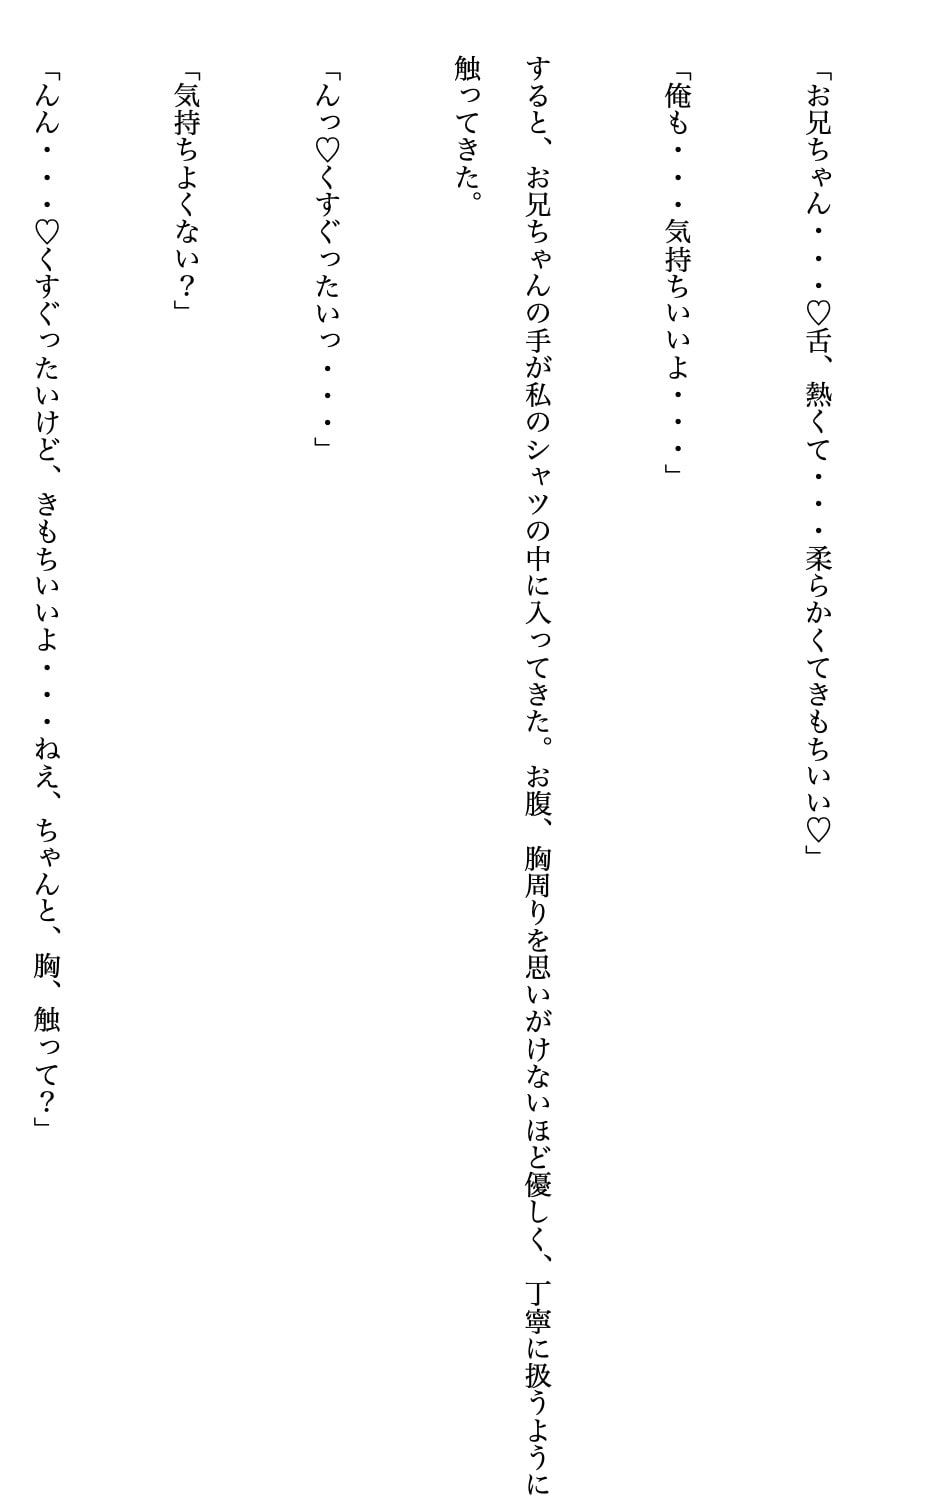 「お兄ちゃん・・・♡舌、熱くて・・・柔らかくてきもちいい♡」
「俺も・・・気持ちいいよ・・・」
すると、お兄ちゃんの手が私のシャツの中に入ってきた。お腹、胸周りを思いがけないほど優しく、丁寧に扱うように
触ってきた。
「んっ♡くすぐったいっ・・・」
「気持ちよくない？」
「んん・・・♡くすぐったいけど、きもちいいよ・・・ねえ、ちゃんと、胸、触って？」